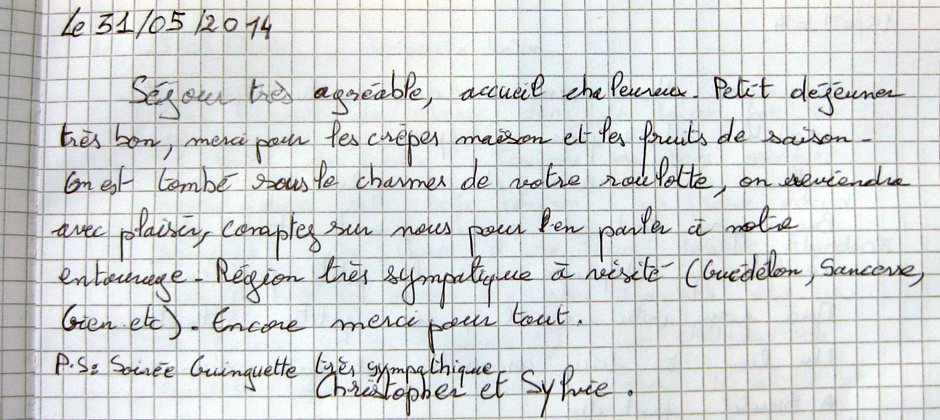 Le 31/05/2014
Séjour très agréable, accueil chaleureux. Petit déjeuner
très bon, merci pour les crêpes maison et les fruits de saison.
On est tombé sous le charmes de votre roulotte, on reviendra
avec plaisir, comptez sur nous pour en parler à notre
entourage. Région très sympatique à visité (Guédelon, Sancerre,
Gien etc). Encore merci pour tout.
P.S: Soirée Guinguette très sympathique
Christopher et Sylvie.